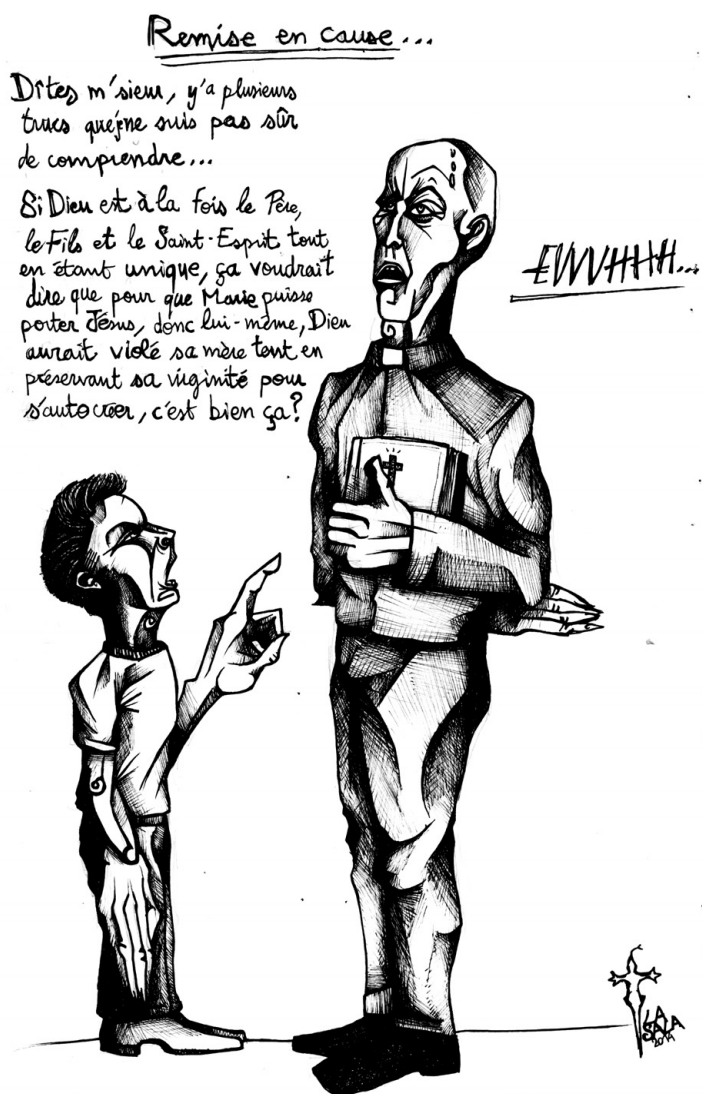 Remise en cause...
Dîtes m'sieur, y'a plusieurs
trucs que j'ne suis pas sûr
de comprendre...
Si Dieu est à la fois le Père,
le Fils et le Saint-Esprit tout
en étant unique, ça voudrait
dire que pour que Marie puisse
porter Jésus, donc lui-même, Dieu
aurait violé sa mère tout en
préservant sa virginité pour
s'autocréer, c'est bien ça?
EUUUHHHH...
LA
SALA
2014